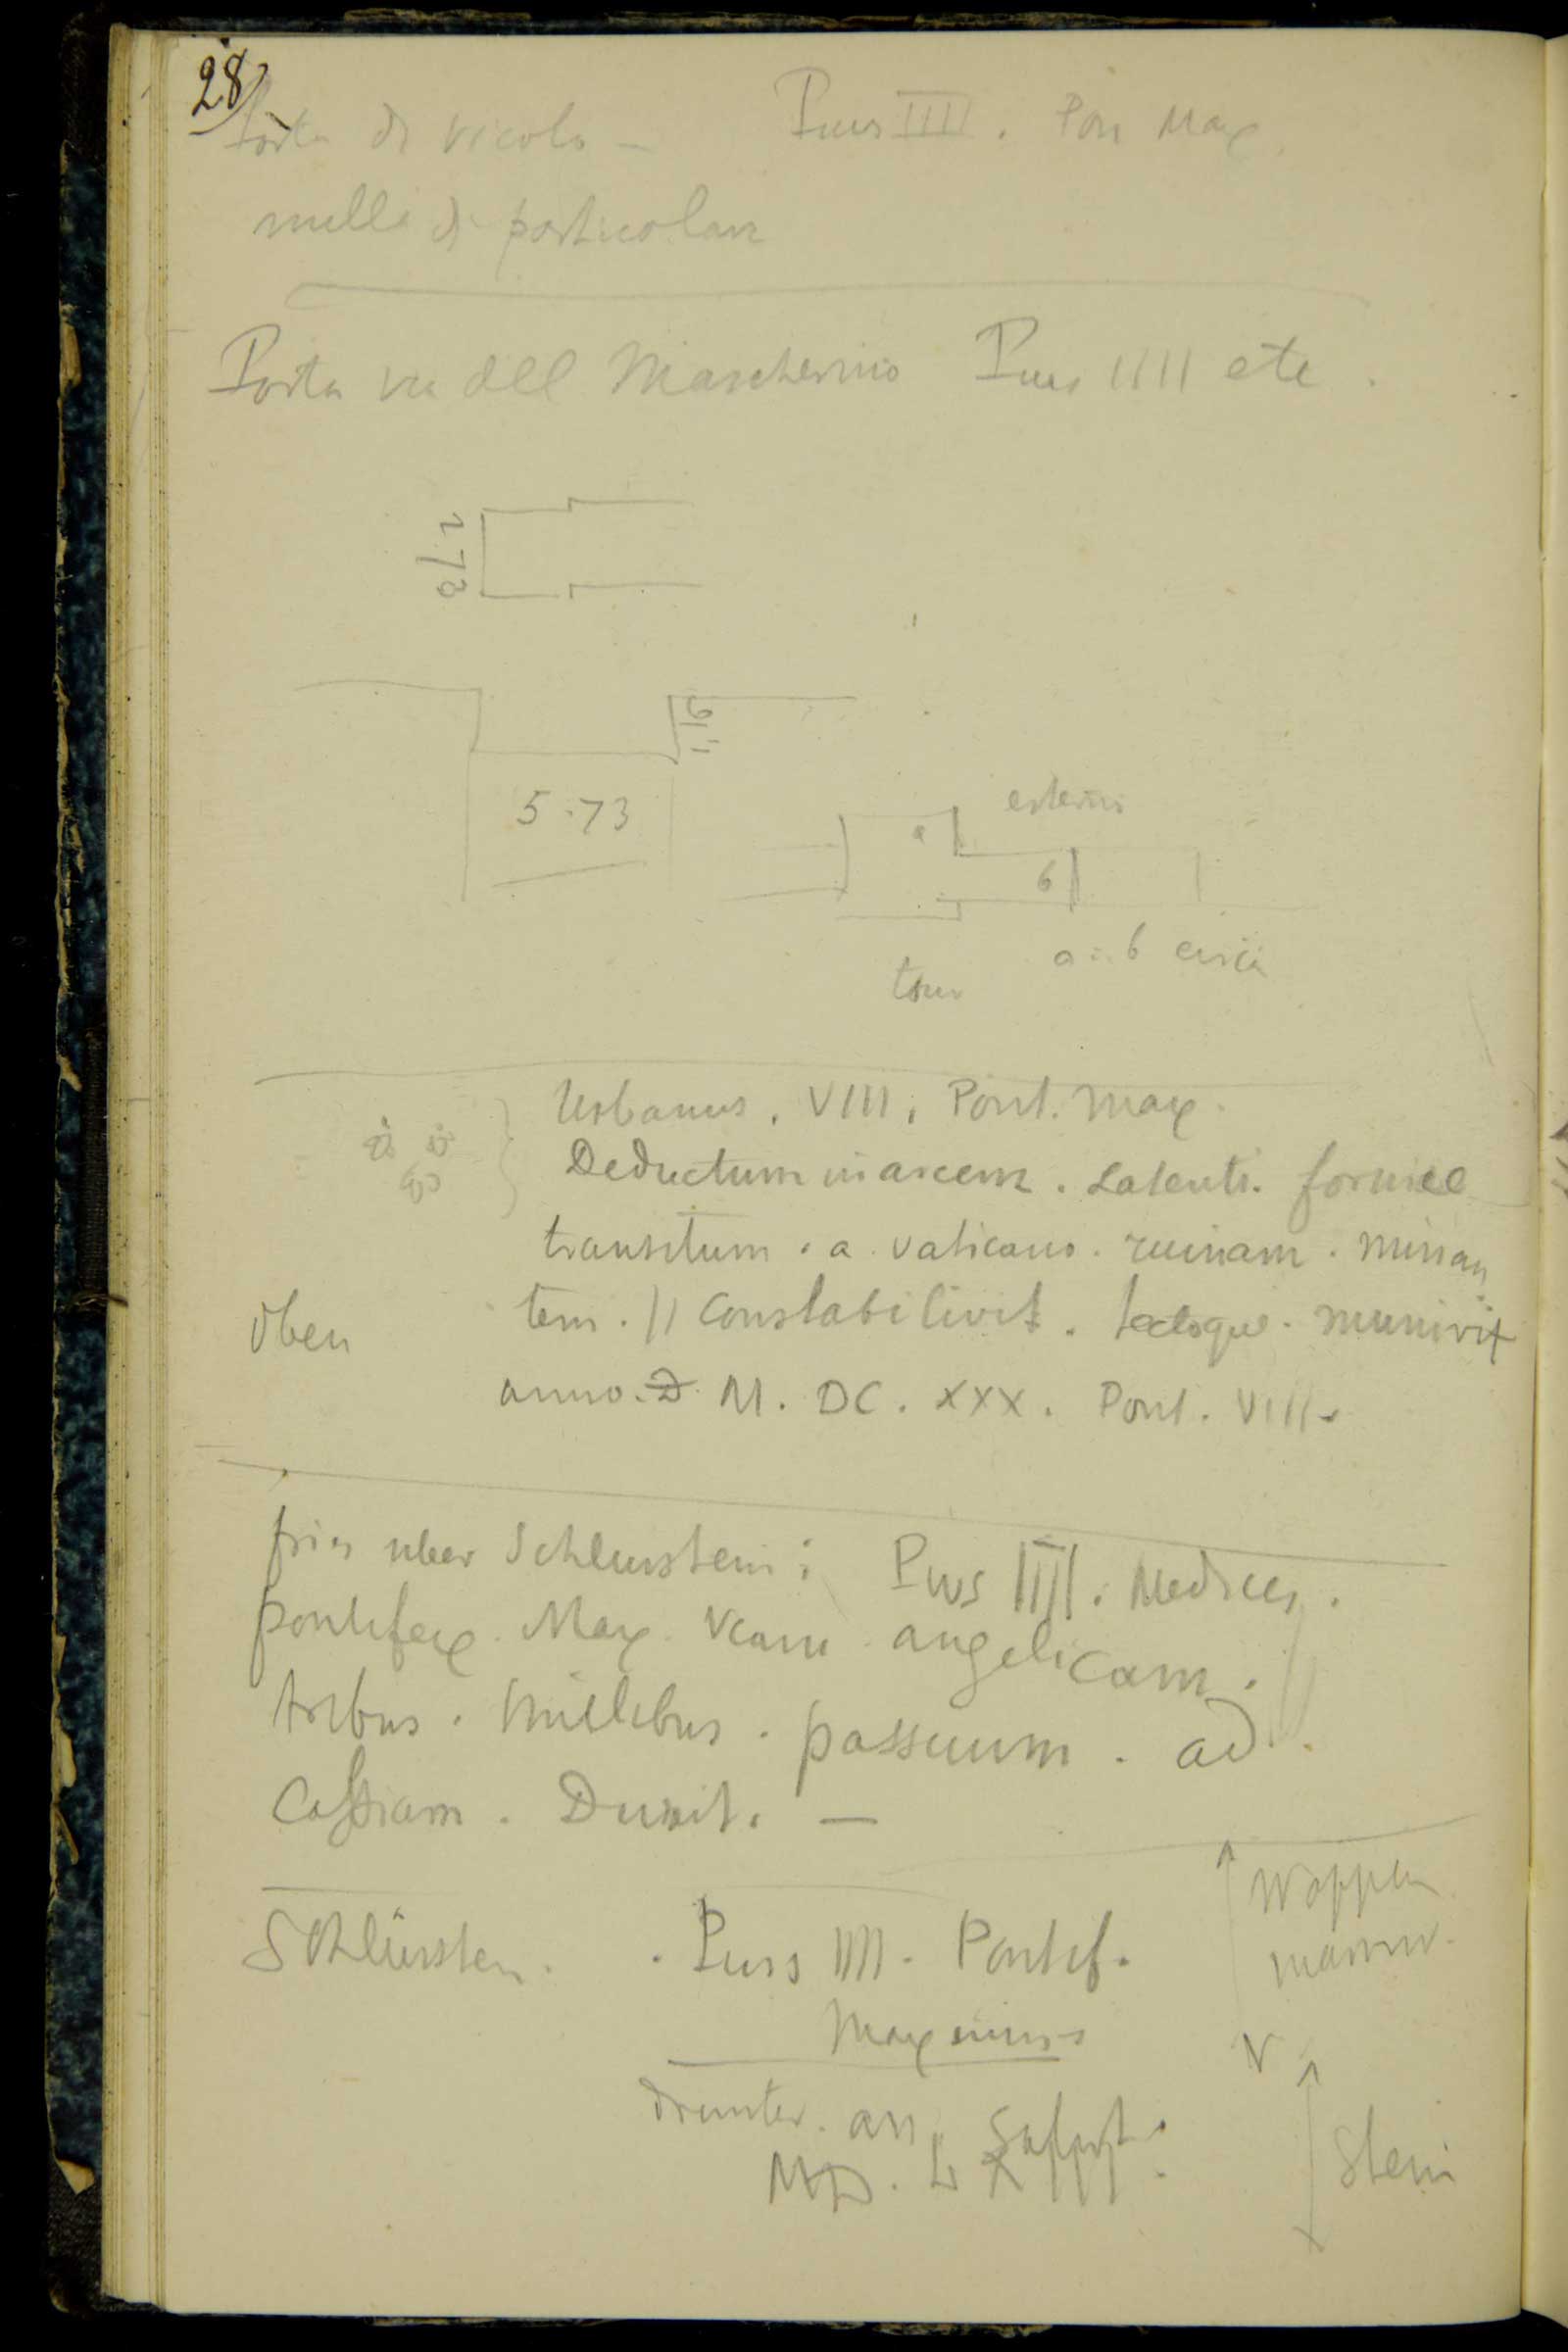 28
Porta di vicolo – Pius IIII. Pon Max.
nulla di particolare
Porta via del Mascherino Pius IIII etc.
2.78
5.73
esterno
a
b
a = b circa
Urbanus. VIII. Pont. Max.
Deductum in arcem. Latenti. fornice
transitum. a. vaticano. ruinam. minan
tem. // Constabilivit. tectoque. munivit
oben
anno. D. M. DC. XXX. Pont. VIII.
fries über Schlusstein: Pius IIII. Medices.
pontifex. Max. viam. angelicam. //
tribus. millibus. passuum. ad.
Cassiam. Duxit. –
Schlusstein. . Pius IIII. Pontif.
Maximus
Wappen
marmor.
drunter. an. Salut.
MD. LXIII.
Stein